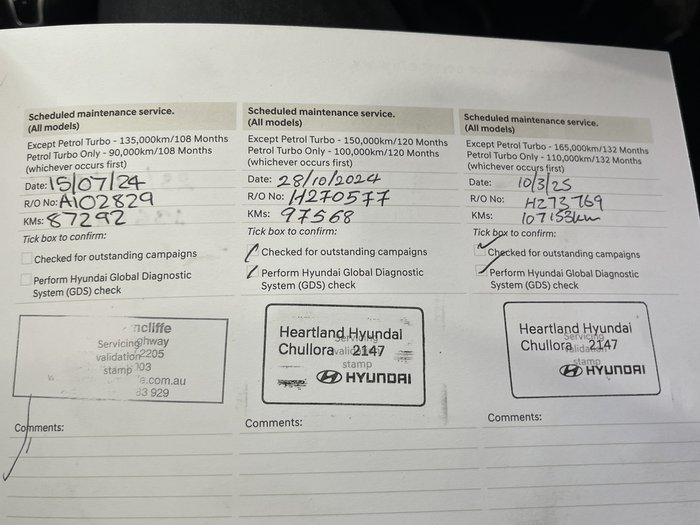 Scheduled maintenance service.
(All models)
Except Petrol Turbo - 135,000km/108 Months
Petrol Turbo Only - 90,000km/108 Months
(whichever occurs first)
Date: 15/07/24
R/O No: A102829
KMs: 87292
Tick box to confirm:
Checked for outstanding campaigns
Perform Hyundai Global Diagnostic
System (GDS) check
ncliffe
Servicing ghway
validation 2205
stamp 03
e.com.au
83 929
Comments:
Scheduled maintenance service.
(All models)
Except Petrol Turbo - 150,000km/120 Months
Petrol Turbo Only - 100,000km/120 Months
(whichever occurs first)
Date: 28/10/2024
R/O No: H270577
KMs: 97568
Tick box to confirm:
Checked for outstanding campaigns
Perform Hyundai Global Diagnostic
System (GDS) check
Heartland Hyundai
Servicing
Chullora 2147
validation
stamp
HYUNDAI
Comments:
Scheduled maintenance service.
(All models)
Except Petrol Turbo - 165,000km/132 Months
Petrol Turbo Only - 110,000km/132 Months
(whichever occurs first)
Date: 10/3/25
R/O No: H273769
KMs: 107153km
Tick box to confirm:
Checked for outstanding campaigns
Perform Hyundai Global Diagnostic
System (GDS) check
Heartland Hyundai
Servicing
Chullora 2147
validation
stamp
HYUNDAI
Comments: